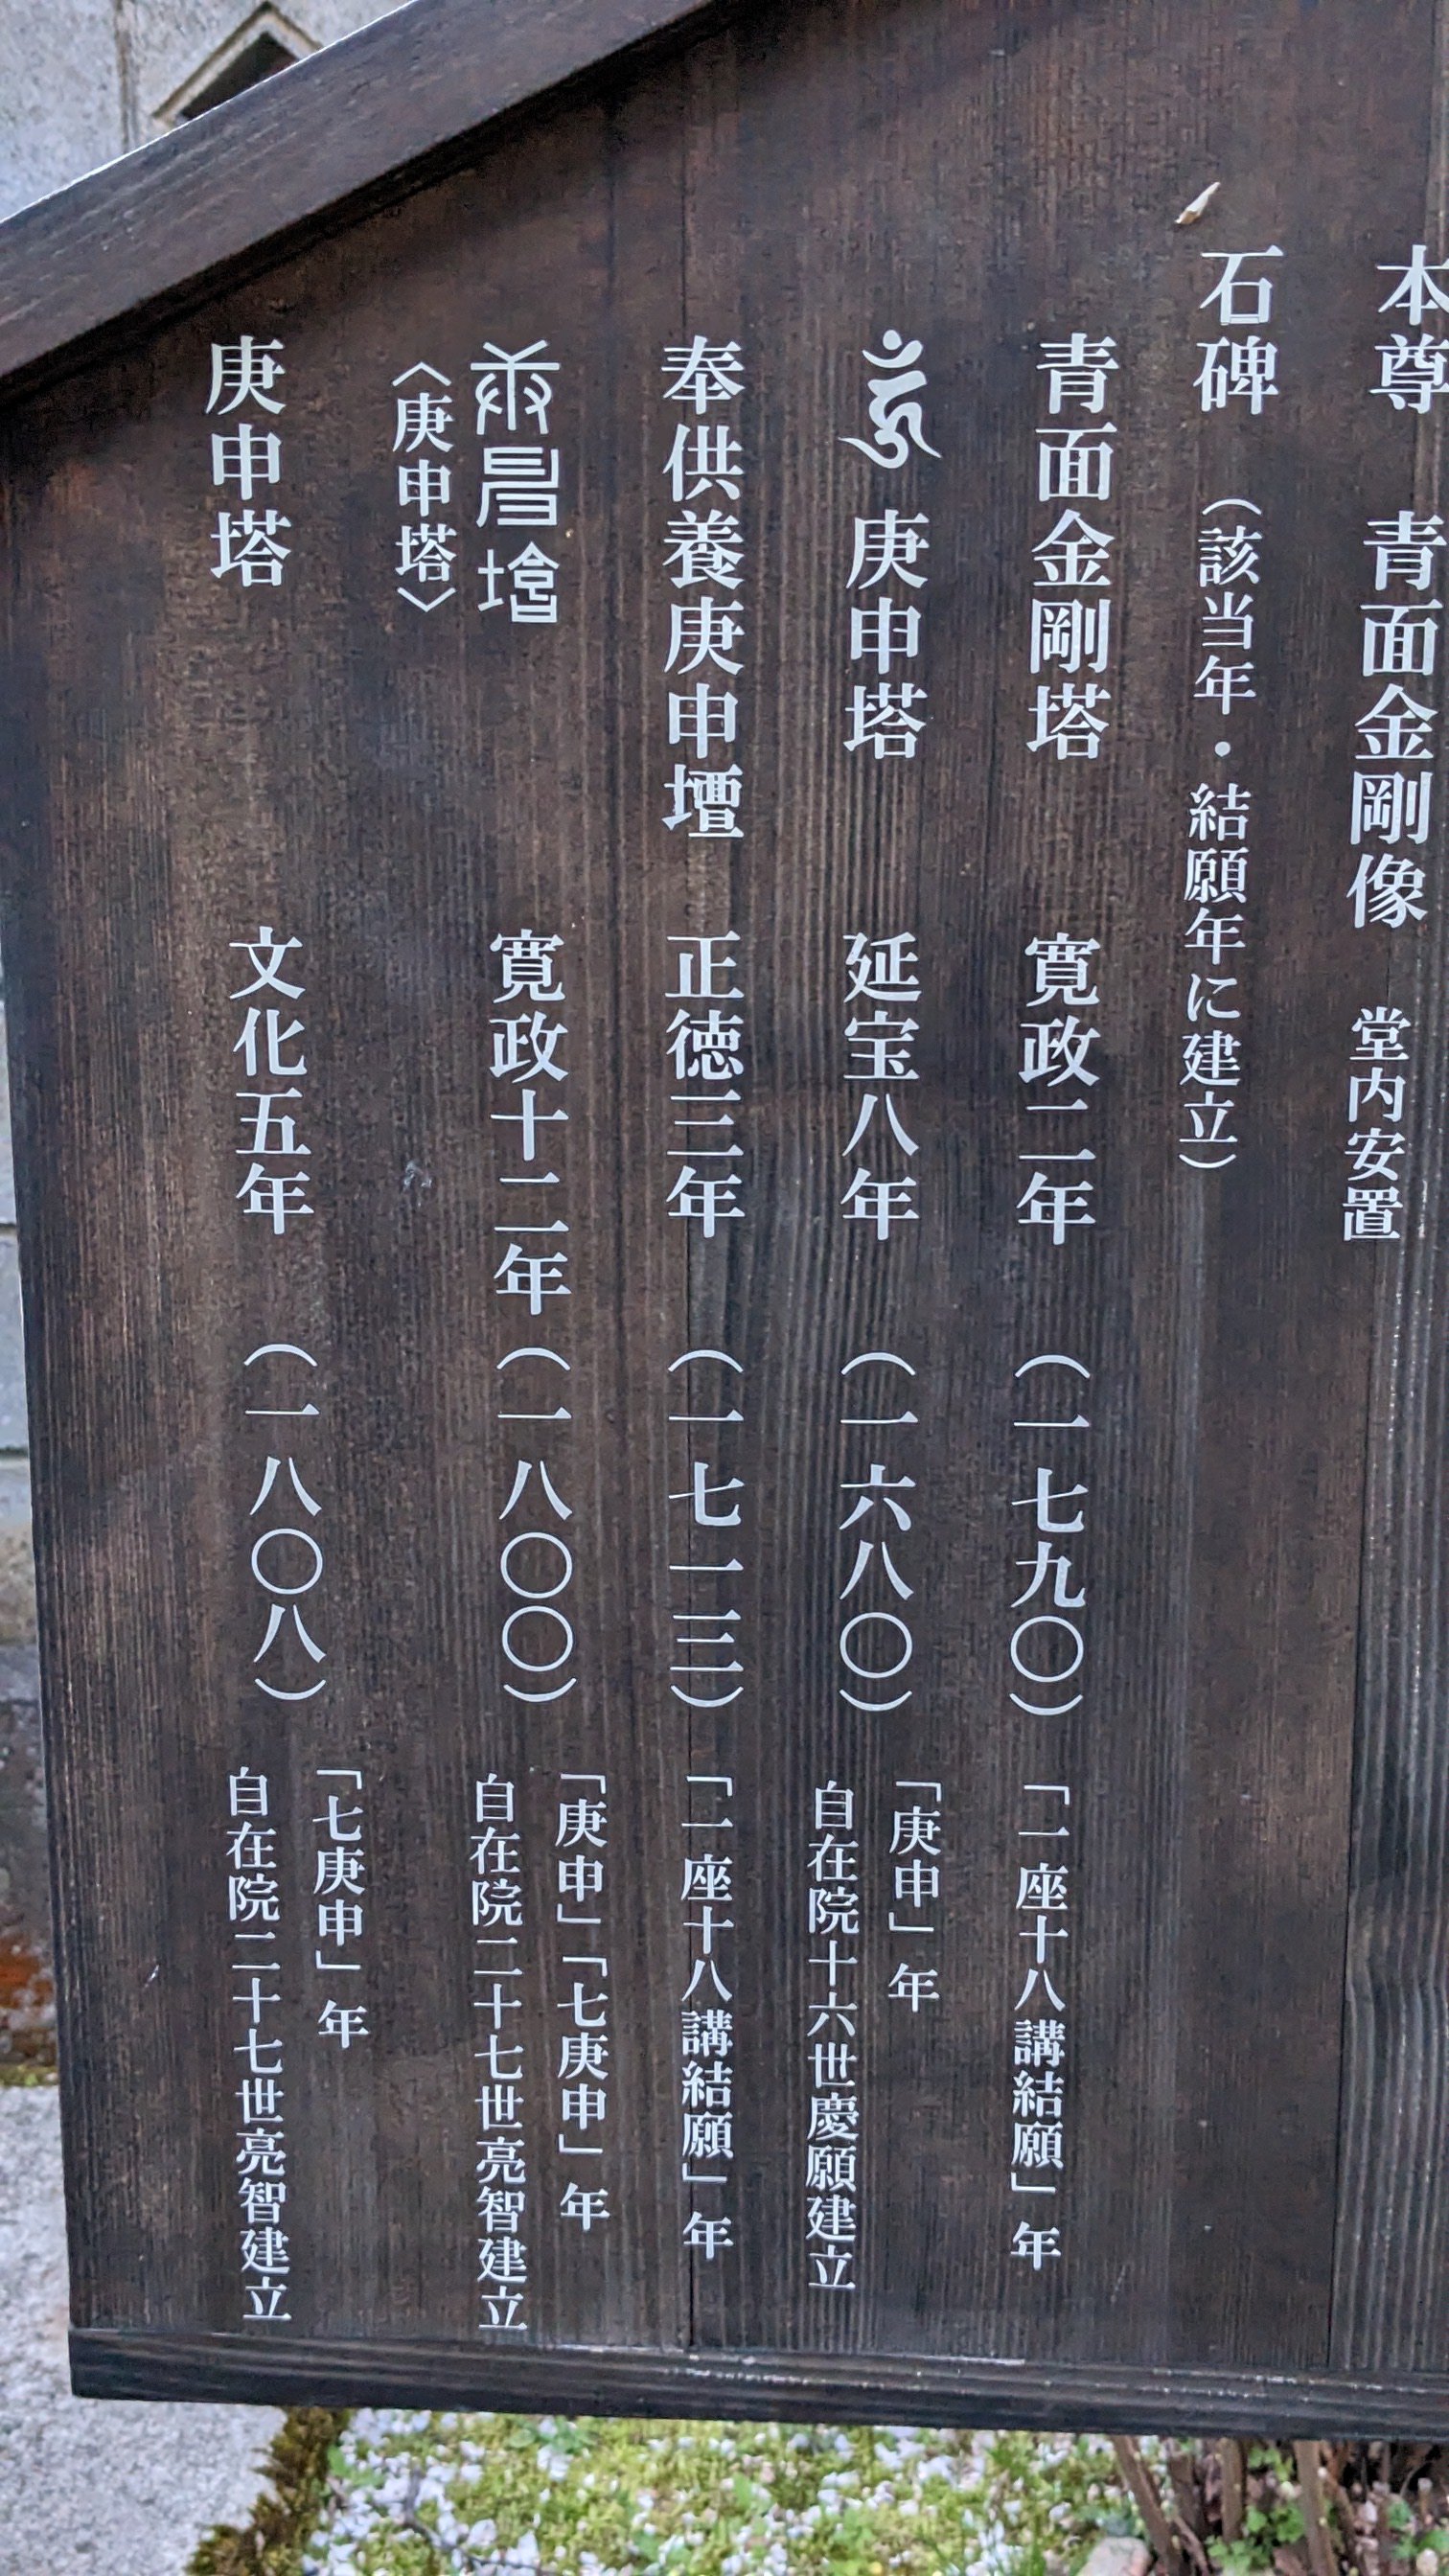 本尊 青面金剛像 堂内安置
石碑 (該当年・結願年に建立)
青面金剛塔 寛政二年 (一七九〇) 「一座十八講結願」年
庚申塔 延宝八年 (一六八〇) 「庚申」年
自在院十六世慶願建立
奉供養庚申壇 正徳三年 (一七一三) 「一座十八講結願」年
寛政十二年 (一八〇〇) 「庚申」「七庚申」年
自在院二十七世亮智建立
〈庚申塔〉
庚申塔 文化五年 (一八〇八) 「七庚申」年
自在院二十七世亮智建立